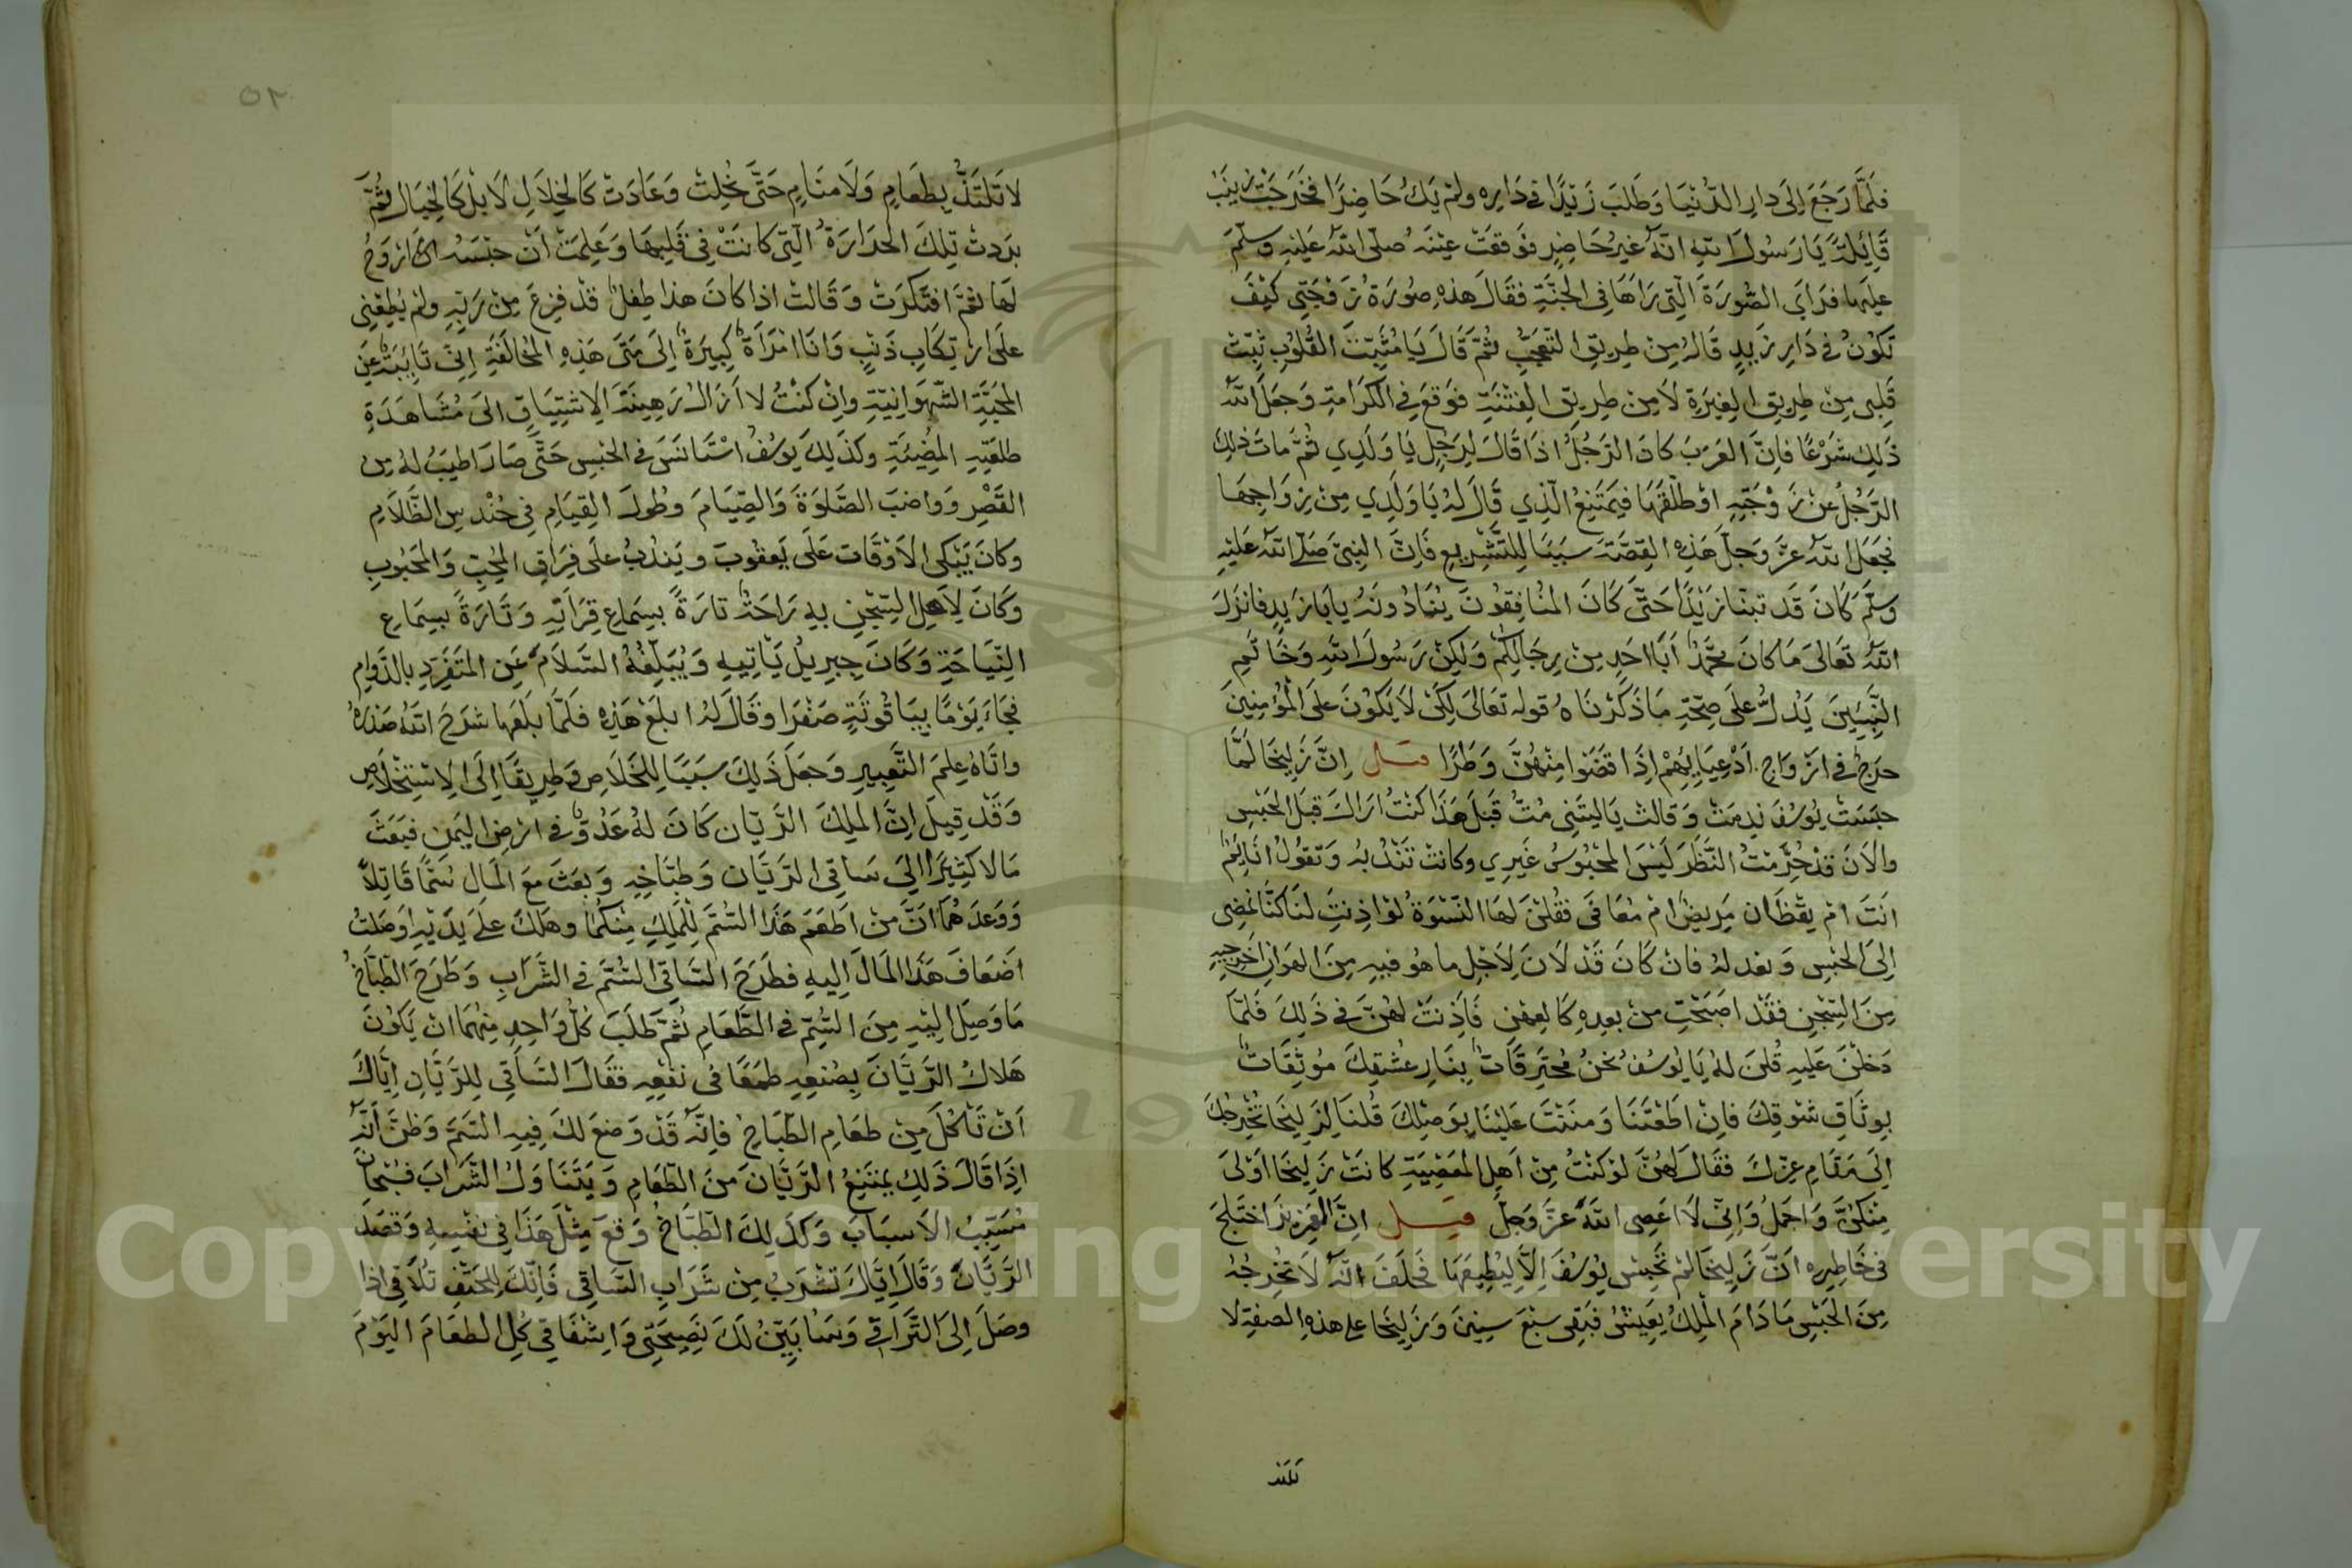 فَلَمَّا رَجَعَ اِلَى دارِ الدُّنْيَا وَطَلَبَ زَيْدًا في دَارِه ولمْ يَكُ حَاضِرًا فَخَرَجَتْ زينَبْ
قَائِلَةً يَا رَسُولَ اللهِ انَّهُ غيرُ حَاضِرٍ فَوَقَعَتْ عَيْنَهُ صَلّى اللهُ عَلَيْهِ وسلّمَ
عليها فرَاَى الصُّورَةَ الّتِى رَاهَا فى الجنَّةِ فقَالَ هذِه صُورَةُ زَوْجَتِى كَيْفَ
تَكُونُ في دَارِ زَيدٍ قالهُ مِنْ طريقِ التّعَجُّبِ ثُمّ قالَ يَا مُثَبِّتَ القُلُوبِ ثبِّتْ
قَلْبِى مِنْ طرِيقِ الغِيَرةِ لاَ مِن طريقِ الفِتْنَةِ فوَقَعَ فِي الكَرَامَةِ وَجَعَلَ اللهُ
ذَلِكَ شَرْعًا فاِنَّ العَرَبَ كادَ الرَجُلُ اذَا قَالَ لِرَجُلٍ يَا وَلَدِي ثُمَّ ماتَ ذلِكَ
الرّجُلُ عَنْ زَوْجَتِهِ اوْ طَلَّقَهَا فيَمتَنِعُ الّذِي قَالَ لهُ يَا وَلَدِي مِنْ زِوَاجِهَا
فجَعَلَ اللهُ عزَّ وَجلَّ هَذِهِ القِصَّةَ سَبَبًا لِلتَّشْرِيعِ فَاِنَّ النبِىَّ صَلّى اللهُ عَلَيْهِ
وسلّمَ كَانَ قَد تبنّا زيْدًا حَتَّى كَانَ المُنَافِقُونَ يُنَادُونَهُ يا اَبا زَيدٍ فانزَلَ
اللهُ تَعَالىَ مَا كانَ محمَّدٌ اَبَا احَدٍ مِنْ رِجَالِكُمْ وَلَكِنْ رَسُولَ اللهِ وَخَاتَمِ
النَّبِيِّينَ يَدُلُّ عَلَى صِحّةِ مَا ذَكَرْنَاهُ قولهُ تعَالىَ لِكَىْ لاَ يَكُونَ علَى المُؤمِنِينَ
حرَجٌ في ازوَاجِ اَدْعِيَائِهِمْ اِذَا قضَوْا مِنْهُنَّ وَطَرًا قيل اِنَّ زَلِيخَا لَمَّا
حبَسَتْ يُوسُفَ نَدِمَتْ وَقالتْ يَا لَيتَنِى مُتُّ قَبْلَ هَذَا كُنتُ ارَاكَ قبْلَ الحَبْسِ
والاَنَ قَدْ حُرِّمْتُ النَّظَرَ لَيْسَ المحْبُوسُ غَيرِي وكانتْ تَنْدُبهُ وَتقولُ انَائِمٌ
انتَ امْ يقْظَان مَرِيضٌ امْ مُعَافَى فقُلْنَ لهَا النّسْوَةُ لوْ اذِنتِ لنَا كُنَّا نمْضِى
اِلَى الحَبْسِ وَنعدلهُ فَانْ كَانَ قَدْ لاَنَ لاَجْلِ ما هُو فِيهِ مِنَ الهَوَانِ اَخرِجِيهِ
مِنَ السِّجْنِ فقَدْ اصبَحْتِ مِنْ بعدِهِ كَالعِهْنِ فَاَذِنَتْ لهُنَّ فِي ذَلِكَ فَلَمَّا
دَخلْنَ عَلَيهِ قُلنَ لَهُ يَا يوُسُفُ نحنُ مُحْتَرِقَاتٌ بِنَارِ عُشْقِكَ مُوثَقَاتٌ
بِوثَاقِ شَوْقِكَ فَاِنْ اطَعْتَنَا وَمنَنْتَ عَلَيْنَا بِوَصْلِكَ قُلنَا لِزَلِيخَا تُخْرِجُكَ
اِلَى مَقَامِ عِزِّكَ فقَالَ لَهُنَّ لوْ كنْتُ مِنْ اَهلِ المَعْصِيَةِ كانَتْ زَلِيخَا اَوْلَى
مِنكُنَّ وَاجمَلُ وَاِنِّى لاَ اعصِى اللهَ عزَّ وَجلَّ قيل انَّ العَزِيزَ اخْتَلَجَ
فى خَاطِرِهِ انَّ زَلِيخَا لمْ تحْبِسْ يوُسُفَ اِلاَّ لِيُطِيعَهَا فَحَلَفَ انَّهُ لاَ تخْرِجُهُ
مِنَ الحَبْسِ مَا دَامَ المَلِكُ يَعِيشُ فبَقِى سَبْعَ سِنِينَ وَزَلِيخَا على هذِهِ الصفَةِ لا
تلتذ
٥٢
لا تَلتَذُّ بِطعَامٍ وَلاَ منَامٍ حَتَّى نَحُلتْ وَعَادَتْ كَالخِلاَلِ لاَ بلْ كَالخَيَالِ ثُمَّ
بَرَدتْ تِلكَ الحَرَارَةُ الّتِى كانَتْ فِى قلْبِهَا وَعَلِمَتْ اَنّ حبْسَهُ
لهَا ثمَّ افتَكَرَت وَقَالتْ اذا كانَ هذا طِفلٌ قدْ فزِعَ مِنْ رَبّهِ ولمْ يُطِعْنِى
علَى ارتِكَابِ ذَنْبٍ وَانَا امْرَأَةٌ كَبِيرَةٌ اِلَى مَتَى هَذِهِ المُخالَفَةِ اِنِّى تَائِبَةٌ عَنِ
المحبَّةِ الشّهوَانِيّةِ وانْ كُنْتُ لا اَزالُ رَهِينَةَ الاشْتِيَاقِ الىَ مُشَاهَدَةِ
طلعَتِهِ المُضِيَّةِ وكذَلِكَ يوُسُفُ اسْتَانَسَ فى الحبْسِ حَتَّى صَارَ اطيَبُ لهُ مِن
القَصْرِ وَواضبَ الصَّلوَةَ وَالصِّيَامَ وَطُولَ القِيَامِ فِى حُنْدسِ الظَّلاَمِ
وكانَ يَبْكِى الاَوْقَاتَ عَلَى يَعقُوبَ ويَندُبُ علَى فِرَاقِ المُحِبِّ وَالمَحْبُوبِ
وَكَانَ لاَهلِ السِّجْنِ بهِ رَاحَةٌ تارَةً بسمَاعِ قِرَائَتِهِ وَتَارَةً بسِمَاعِ
النِّيَاحَةِ وَكَانَ جِبرِيلُ يَاتِيهِ وَيُبَلِّغُهُ السَّلاَمَ عَنِ المتَفَرِّدِ بالدَّوامِ
فجَاءَ يَوْمًا بِيَاقُوتَةٍ صَفْرَا وقَالَ لهُ ابلَعْ هَذِهِ فلَمَّا بلَعَهَا شرَحَ اللهُ صَدْرَهُ
واتَاهُ عِلمَ التَّعبِيرِ وَجعَلَ ذَلِكَ سَبَبًا لِلخَلاَصِ وَطرِيقًا اِلَى الاِسْتِخْلاَصِ
وَقَدْ قِيلَ اِنَّ المَلِكَ الرَّيّان كَانَ لهُ عَدُوٌّ فى ارضِ اليَمنِ فبَعَثَ
مَالا كثِيرًا اِلىَ سَاقِى الرَّيَّان وَطبَّاخِهِ وَبعَثَ مَعَ المَالِ سُمًّا قَاتِلاً
وَوَعدَهُمَا انَّ مَنْ اطعَمَ هَذَا السُّمَّ لِلمَلِكِ مِنكُمَا وهَلكَ علَى يَدَيْهِ اوصَلتُ
اضعَافَ هَذَا المَالَ اِليهِ فطَرَحَ السَّاقِى السُّمَّ في الشَّرَابِ وَطَرَحَ الطّبَّاخُ
مَا وَصَلَ اليْهِ مِنَ السُّمِّ فى الطَّعَامِ ثُمَّ طلَبَ كلُّ وَاحِدٍ مِنهُمَا انْ يَكوُنَ
هَلاكُ الرَّيَّانَ بِصُنعِهِ طمَعًا فى نفْعِهِ فقَالَ السَّاقِى لِلرَّيَّانِ اِيَّاكَ
اَنْ تَاْكُلَ مِنْ طعَامِ الطّبَّاخِ فاِنَّهُ قَدْ وَضعَ لكَ فِيهِ السّمَّ وَظنَّ اَنّهُ
اِذَا قَالَ ذَلِكَ يمتَنِعُ الرَّيَّانَ مَنَ الطّعَامِ وَيَتَنَاوَلُ الشَّرَابَ فسُبْحَانَ
مُسَبِّبُ الاَسبَابَ وَكذَلِكَ الطّبّاخُ وَقعَ مِثْلَ هَذَا فِى نفْسِهِ وَقصَدَ
الرّيَّانَ وَقَالَ اِيَّاكَ تشْرَبُ مِنْ شرَابِ السّاقِى فَاِنّكَ لِلحَتْفِ تُلاَقِى اذا
وصَلَ اِلىَ التَّرَاقِى وَسَابَيِّنُ لَكَ نَصِيحَتِى وَاِشْفَاقِى كُلِ الطعَامَ اليَوْمَ
Copyright © King Saud University